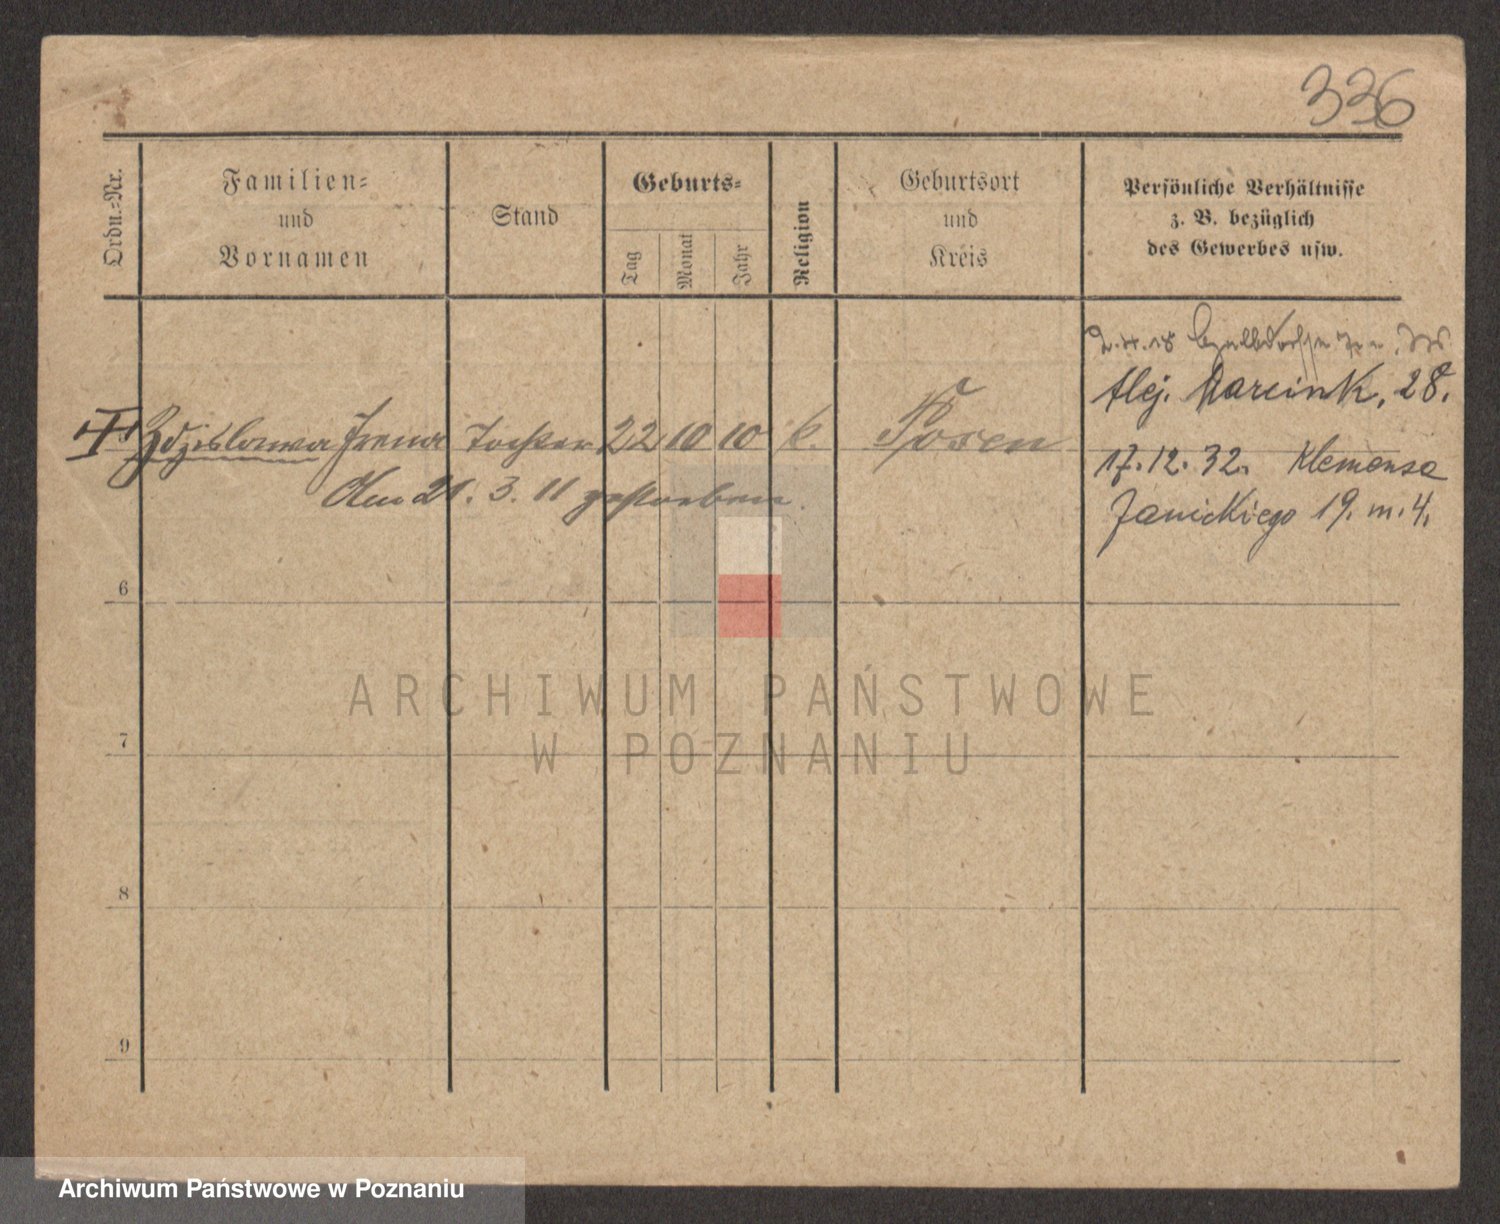 336
Ordn.-Nr.
Familien-
und
Vornamen
Stand
Geburts-
Tag
Monat
Jahr
Religion
Geburtsort
und
Kreis
Persönliche Verhältnisse
z. B. bezüglich
des Gewerbes usw.
2.4.18
Alej. Marcink. 28.
Zdzislawa Irena Tochter 22 10 10 k. Posen
17.12.32. Klemensa
Am 21. 3. 11 gestorben.
Janickiego 19. m. 4.
6
7
8
9
ARCHIWUM PAŃSTWOWE
W POZNANIU
Archiwum Państwowe w Poznaniu